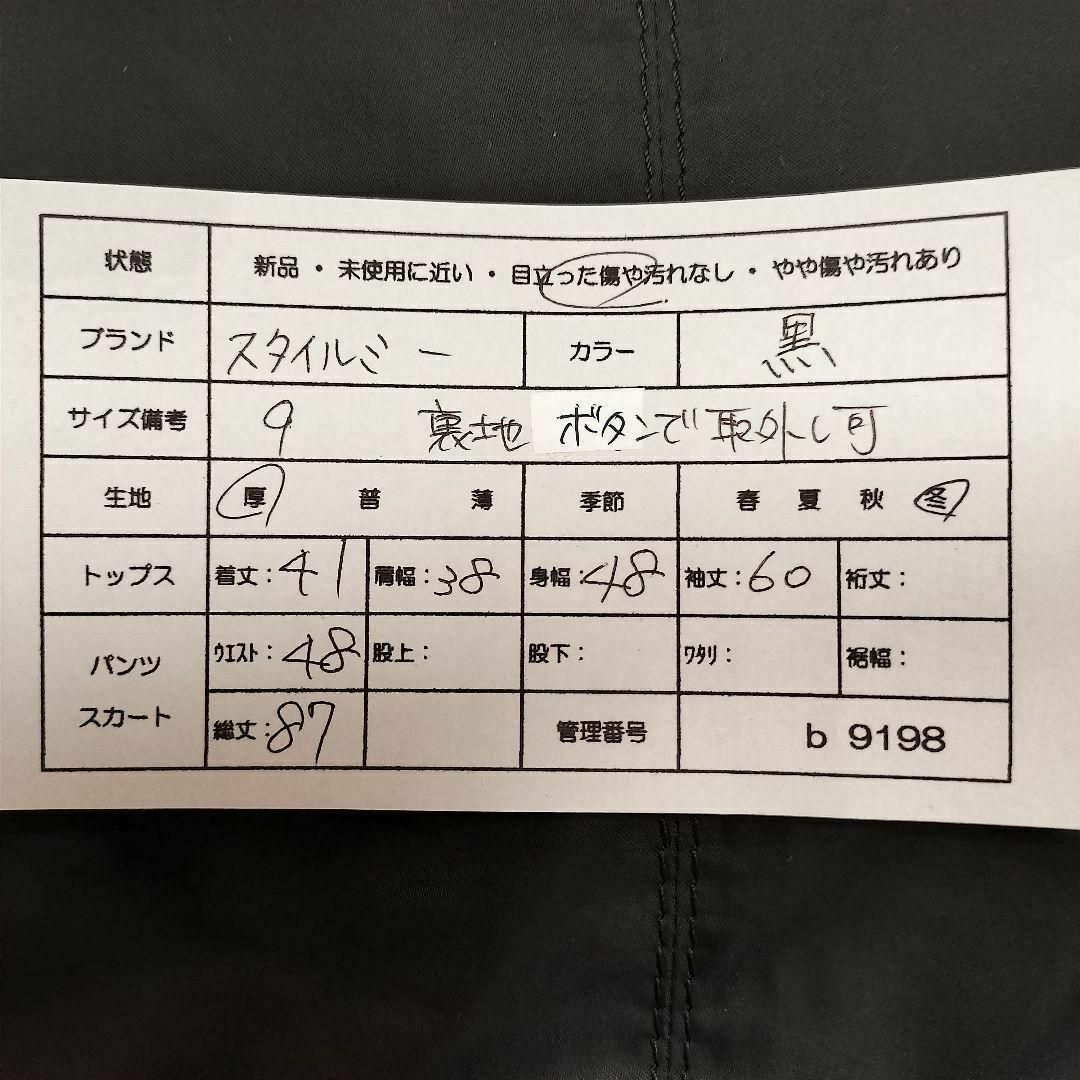 状態 新品・未使用に近い・目立った傷や汚れなし・やや傷や汚れあり
ブランド スタイルミー カラー 黒
サイズ備考 9 裏地 ボタンで取外し可
生地 厚 普 薄 季節 春 夏 秋 冬
トップス 着丈:41 肩幅:38 身幅:48 袖丈:60 裄丈:
パンツ ウエスト:48 股上: 股下: ワタリ: 裾幅:
スカート 総丈:87 管理番号 b 9198